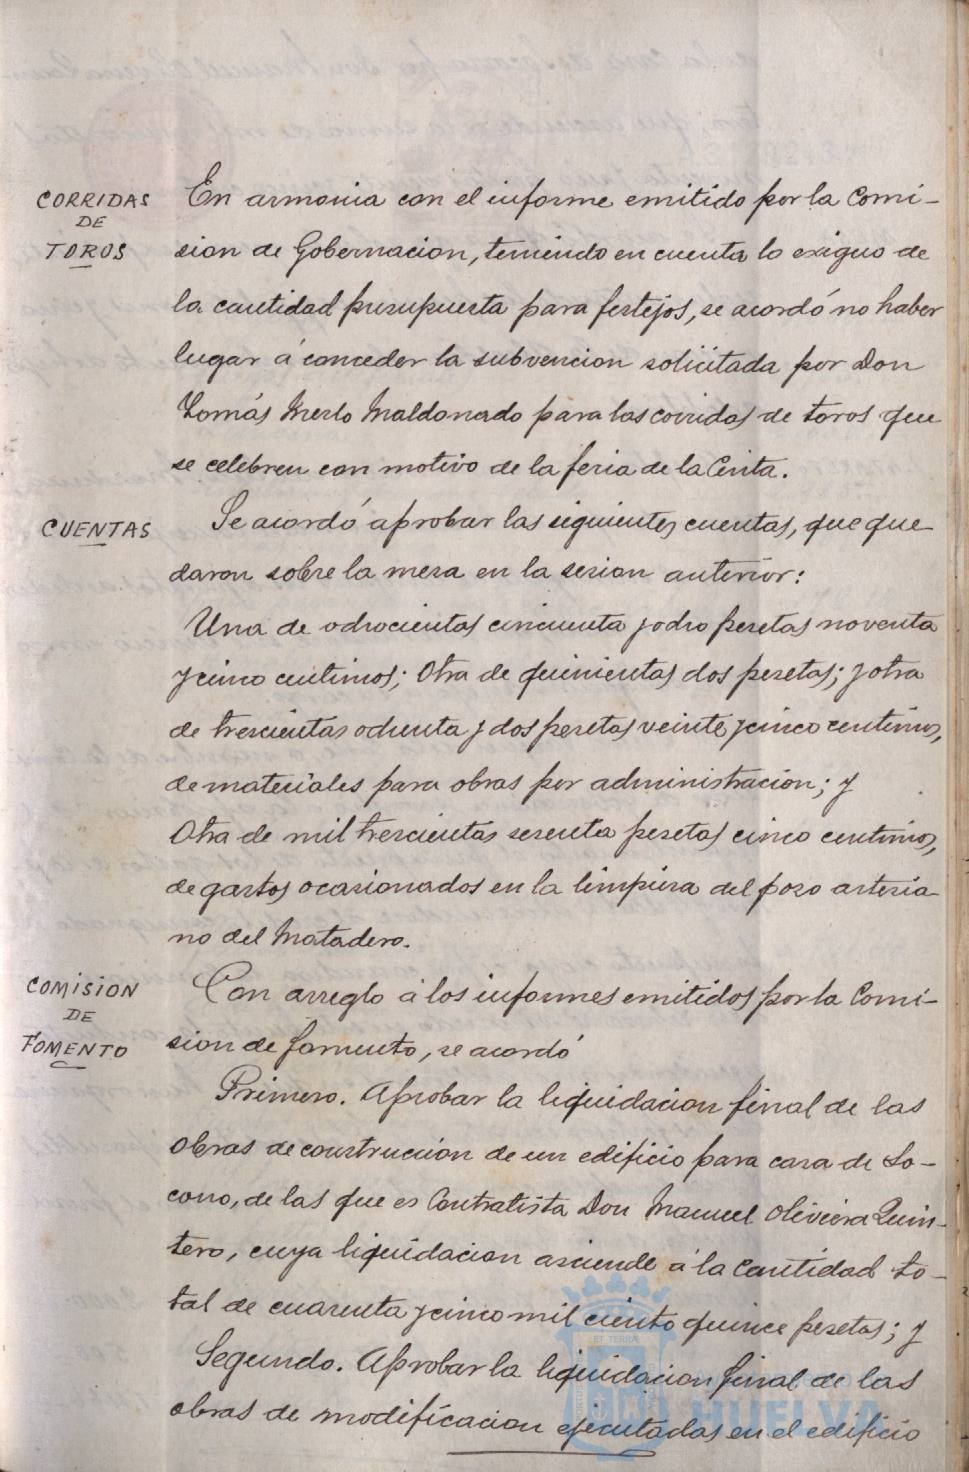 CORRIDAS
DE
TOROS
En armonia con el informe emitido por la Comi-
sion de Gobernacion, teniendo en cuenta lo exiguo de
la cantidad presupuesta para festejos, se acordó no haber
lugar á conceder la subvencion solicitada por Don
Tomás Merlo Maldonado para las corridas de toros que
se celebren con motivo de la feria de la Cinta.
CUENTAS
Se acordó aprobar las siguientes cuentas, que que-
daron sobre la mesa en la sesion anterior:
Una de ochocientas cincuenta y ocho pesetas noventa
y cinco centimos; Otra de quinientas dos pesetas; y otra
de trescientas ochenta y dos pesetas veinte y cinco centimos,
de materiales para obras por administracion; y
Otra de mil trescientas sesenta pesetas cinco centimos,
de gastos ocasionados en la limpieza del pozo artesia-
no del Matadero.
COMISION
DE
FOMENTO
Con arreglo á los informes emitidos por la Comi-
sion de fomento, se acordó
Primero. Aprobar la liquidacion final de las
obras de construcción de un edificio para casa de So-
corro, de las que es Contratista Don Manuel Oliveira Quin-
tero, cuya liquidacion asciende á la cantidad to-
tal de cuarenta y cinco mil ciento quince pesetas; y
Segundo. Aprobar la liquidacion final de las
obras de modificacion ejecutadas en el edificio
ET TERRA
HUELVA